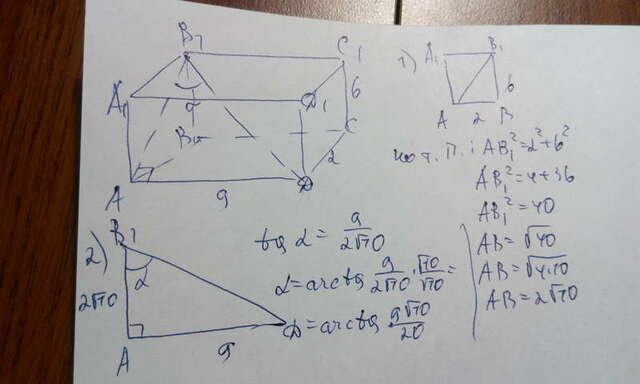 B₁ C₁
A₁ α D₁ 6
B C
2
A 9 D
1) A₁ B₁
6
A 2 B
по т. П.: AB₁² = 2² + 6²
AB₁² = 4 + 36
AB₁² = 40
AB = √40
AB = √4·10
AB = 2√10
2) B₁
α
2√10
A 9 D
tg α = 9/2√10
α = arctg 9/2√10 · √10/√10 =
= arctg 9√10/20